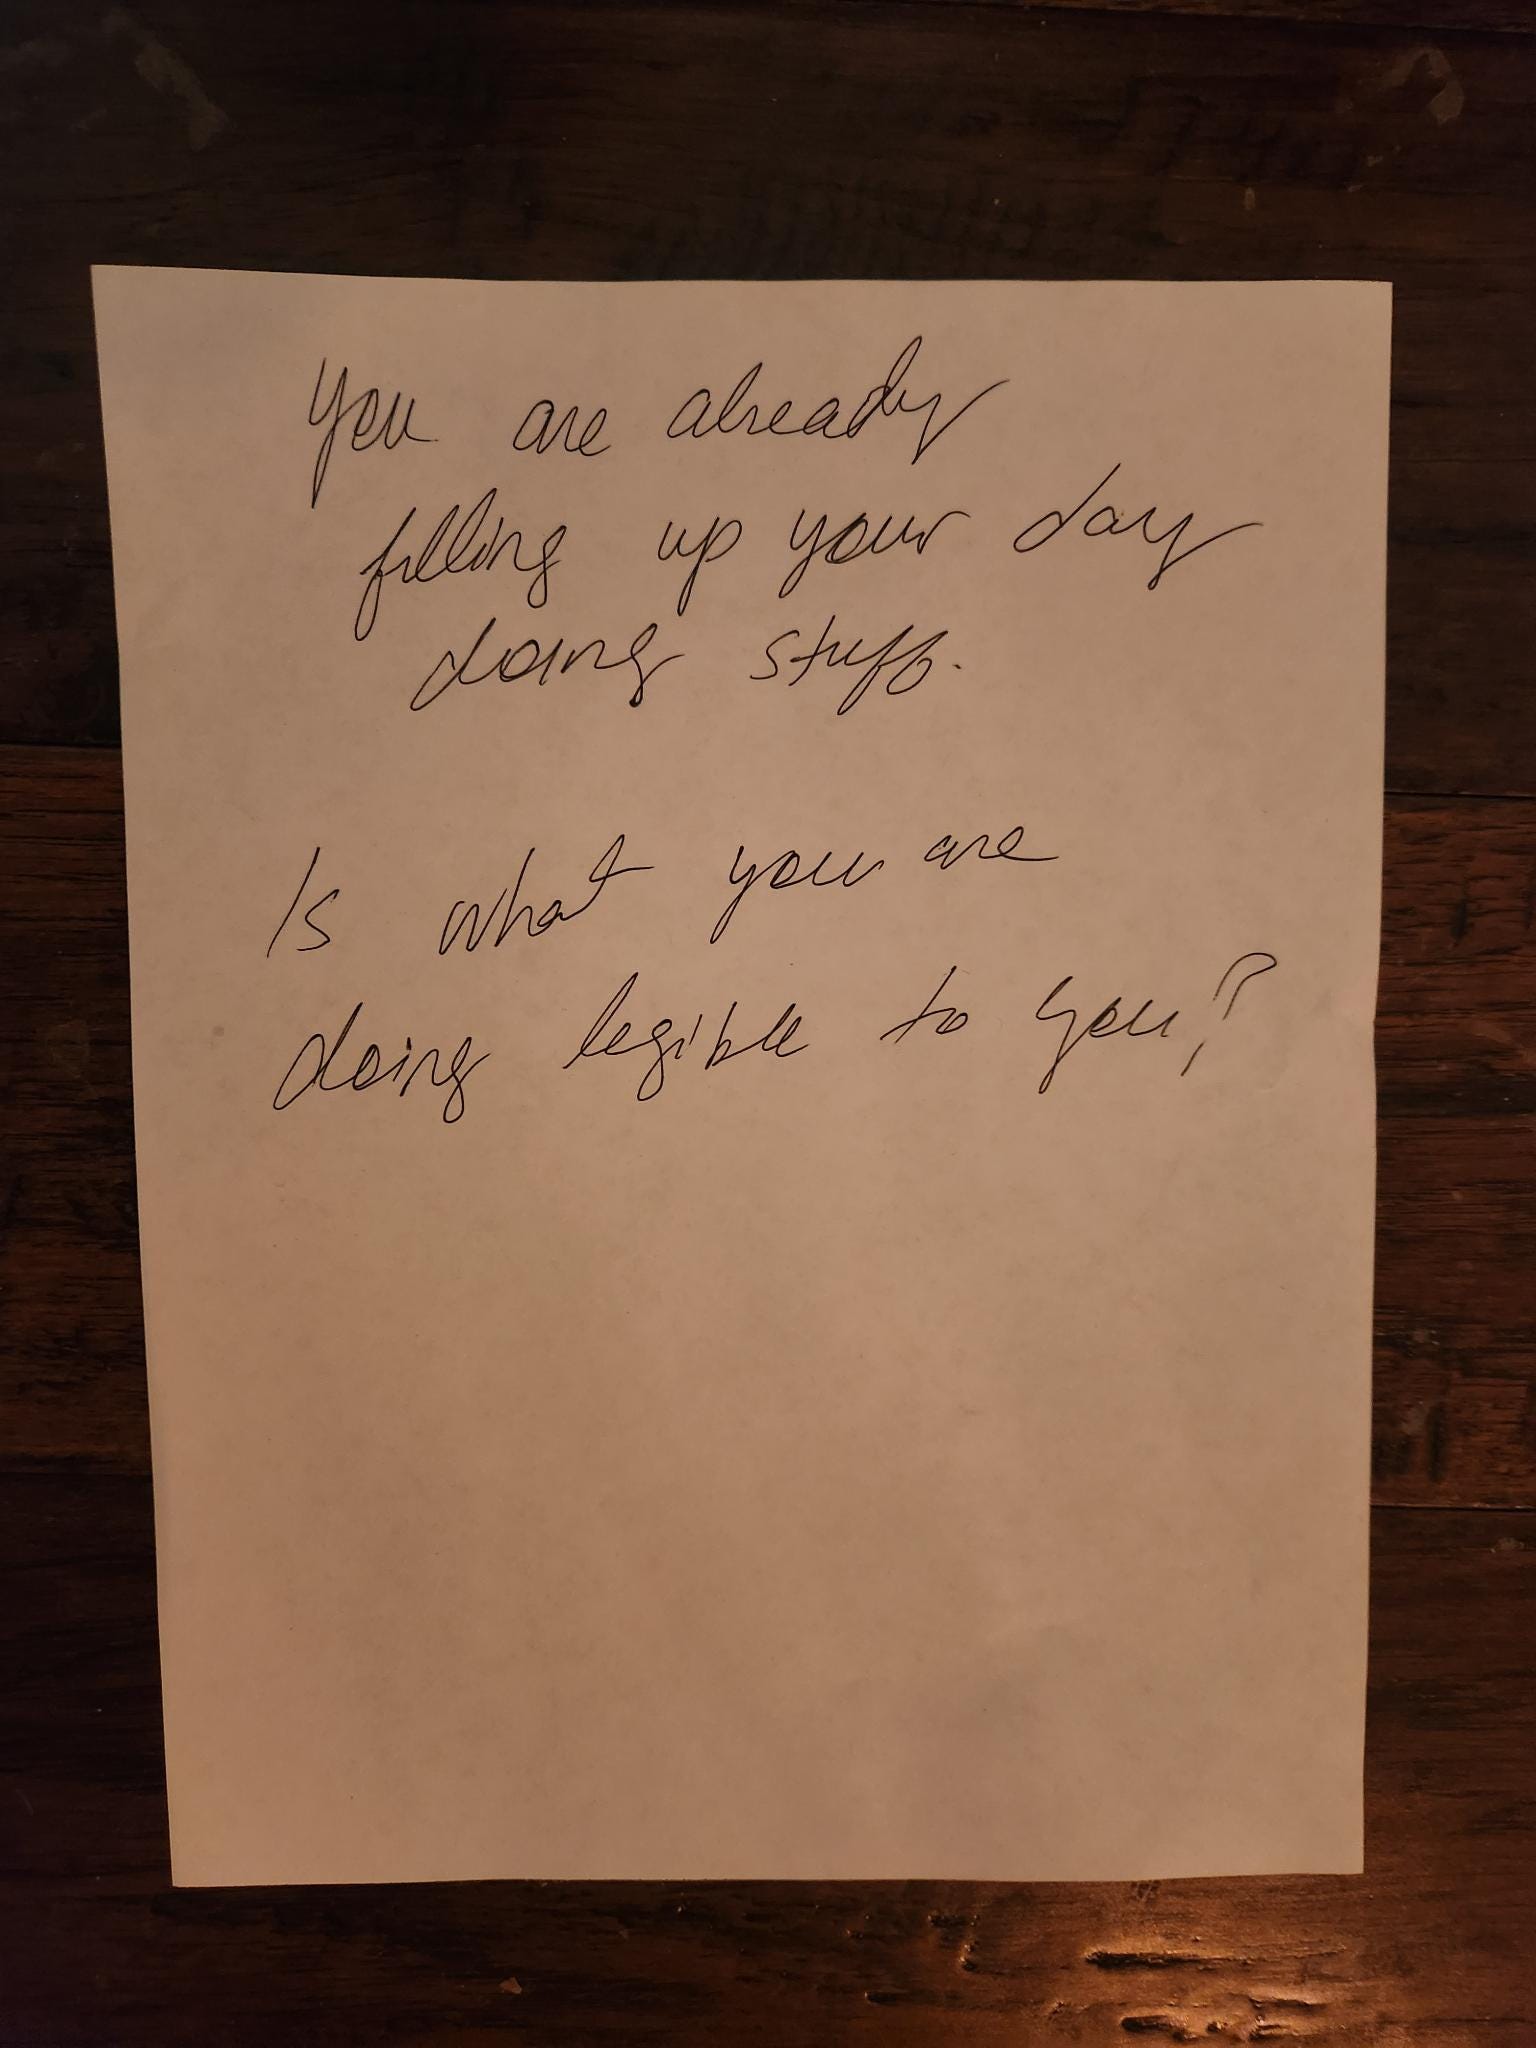 You are already
filling up your day
doing stuff.
Is what you are
doing legible to you?